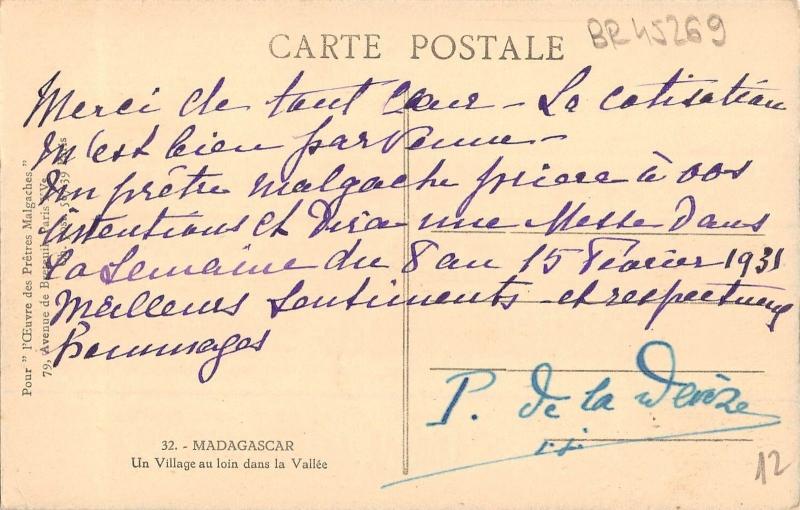 CARTE POSTALE
BR45269
Merci de tout cœur - La cotisation
m'est bien parvenue -
Un prêtre malgache priera à vos
intentions et dira une Messe dans
la semaine du 8 au 15 Février 1931
Meilleurs sentiments et respectueux
hommages
P. de la Devèze
s.j.
Pour "l'Œuvre des Prêtres Malgaches."
79, Avenue de Breteuil, Paris XV
32. - MADAGASCAR
Un Village au loin dans la Vallée
12